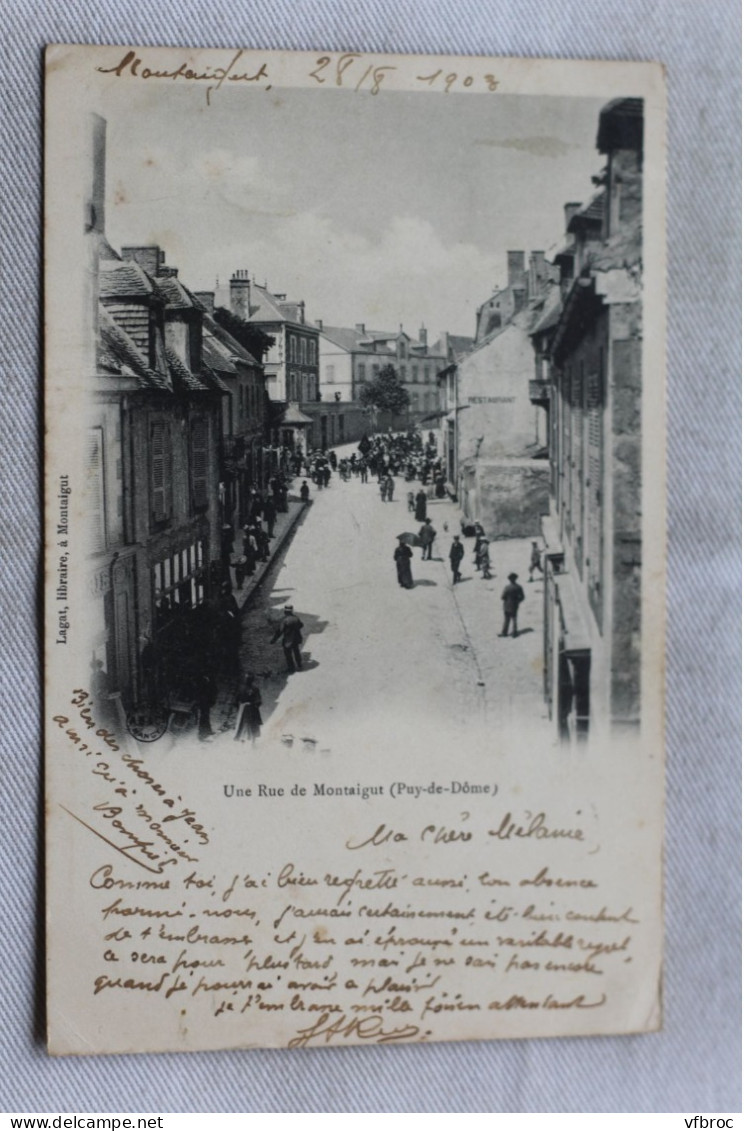 Montaigut, 28/8 1903
RESTAURANT
Lagat, libraire, à Montaigut
Une Rue de Montaigut (Puy-de-Dôme)
Bien des choses à Jean
ainsi qu'à monsieur
Ma Chère Mélanie,
Comme toi, j'ai bien regretté aussi ton absence
parmi-nous, j'aurais certainement été bien content
de t'embrasser et j'en ai éprouvé un veritable regret
ce sera pour plus tard mais je ne sai pas encore
quand je pourrai avoir ce plaisir
je t'embrasse mille fois en attendant
delcampe.net
vfbroc